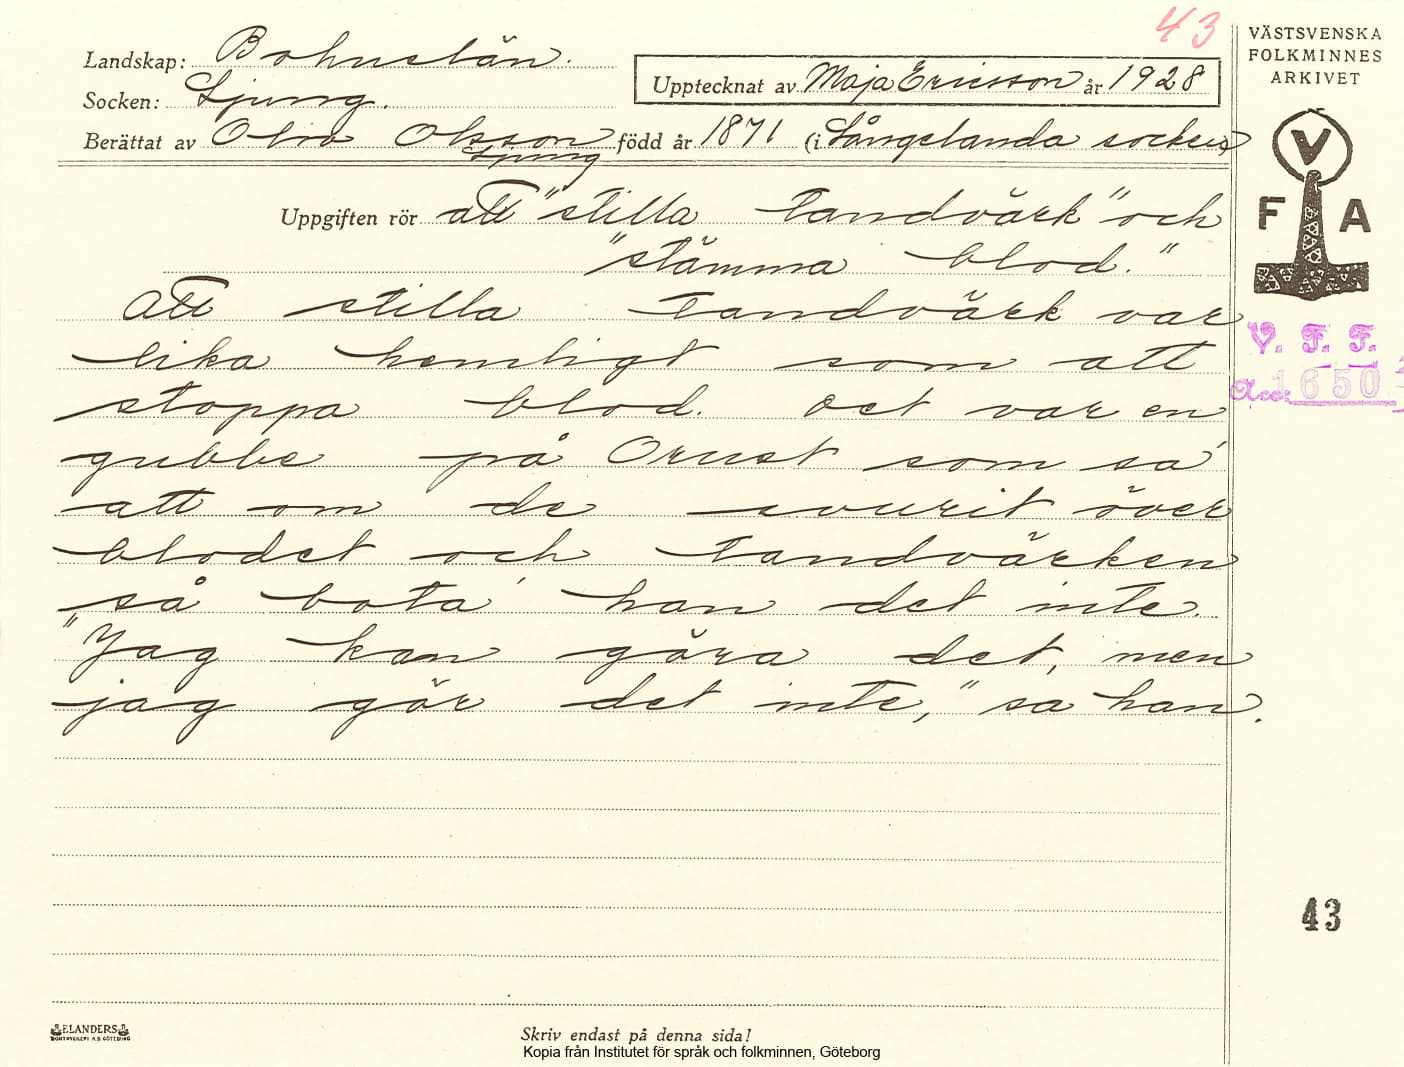 43
Landskap: Bohuslän.
Socken: Ljung.
Upptecknat av Maja Ericsson år 1928
Berättat av Olivia Olsson född år 1871 (i Långelanda socken)
Ljung
Uppgiften rör att "stilla tandvärk" och
"stämma blod."
Att stilla tandvärk var
lika hemligt som att
stoppa blod. Det var en
gubbe på Orust som sa'
att om de svurit över
blodet och tandvärken
så bota' han det inte.
"Jag kan göra det, men
jag gör det inte," sa han.
VÄSTSVENSKA
FOLKMINNES
ARKIVET
V
F A
V. F. F.
Acc: 1650
43
ELANDERS
BOKTRYCKERI A.B. GÖTEBORG
Skriv endast på denna sida!
Kopia från Institutet för språk och folkminnen, Göteborg